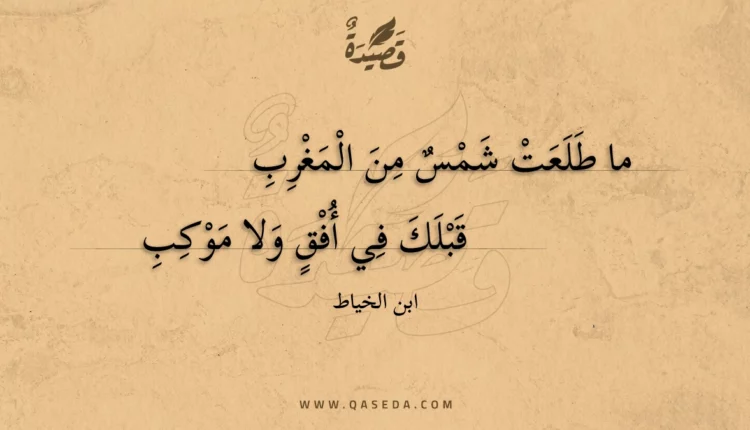 قَصِيدَةٌ
ما طَلَعَتْ شَمْسٌ مِنَ الْمَغْرِبِ
قَبْلَكَ فِي أُفْقٍ وَلا مَوْكِبِ
ابن الخياط
WWW.QASEDA.COM